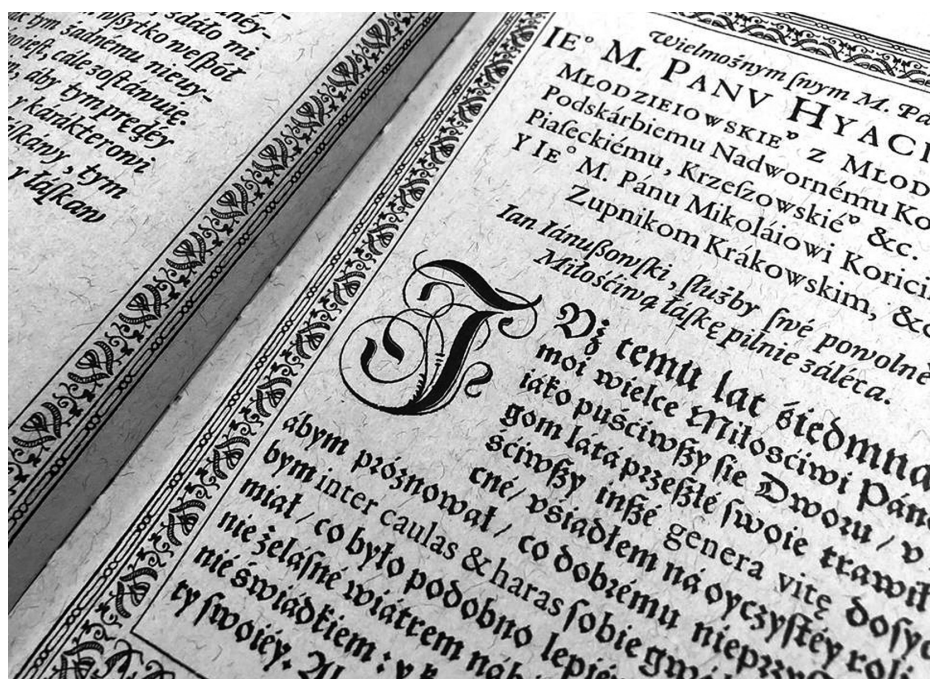 zdáło mi
wſſytko weſpoł
tym żadnému nieuy-
ieſt, cále zoſtáwuię.
aby tym prędẓéy
y Karakterowi
tym
y łáſkaw
Wielmożnym ſwym M. Pá
IE° M. PANV HYAC
MŁODZIEIOWSKIE° Z MŁOD
Podskárbiemu Nadwornému Ko
Piaſeckiému, Krzeſzowskié° &c.
Y IE° M. Pánu Mikoláiowi Koriciń
Zupnikom Krákowskim, &c
Ian Iánuſzowſki, ſłużby ſwé powolné
Miłościwą łáſkę pilnie záléca.
IVż temu lat śiedmna
moi wielce Miłościwi Páno
iáko puściwſzy ſie Dworu / v
gom latá przeſzłé ſwoie trawił
ściwſzy inſzé genera vitę doſyć
cné / vśiadłem ná oyczyſtéy roli
ábym próżnował / co dobrému nieprzy
bym inter caulas & haras ſobie gw
miał / co było podobno lepié
nie żeláſné wiátrem náb
nié świádkiem : y k
ty ſwoiéy. Al